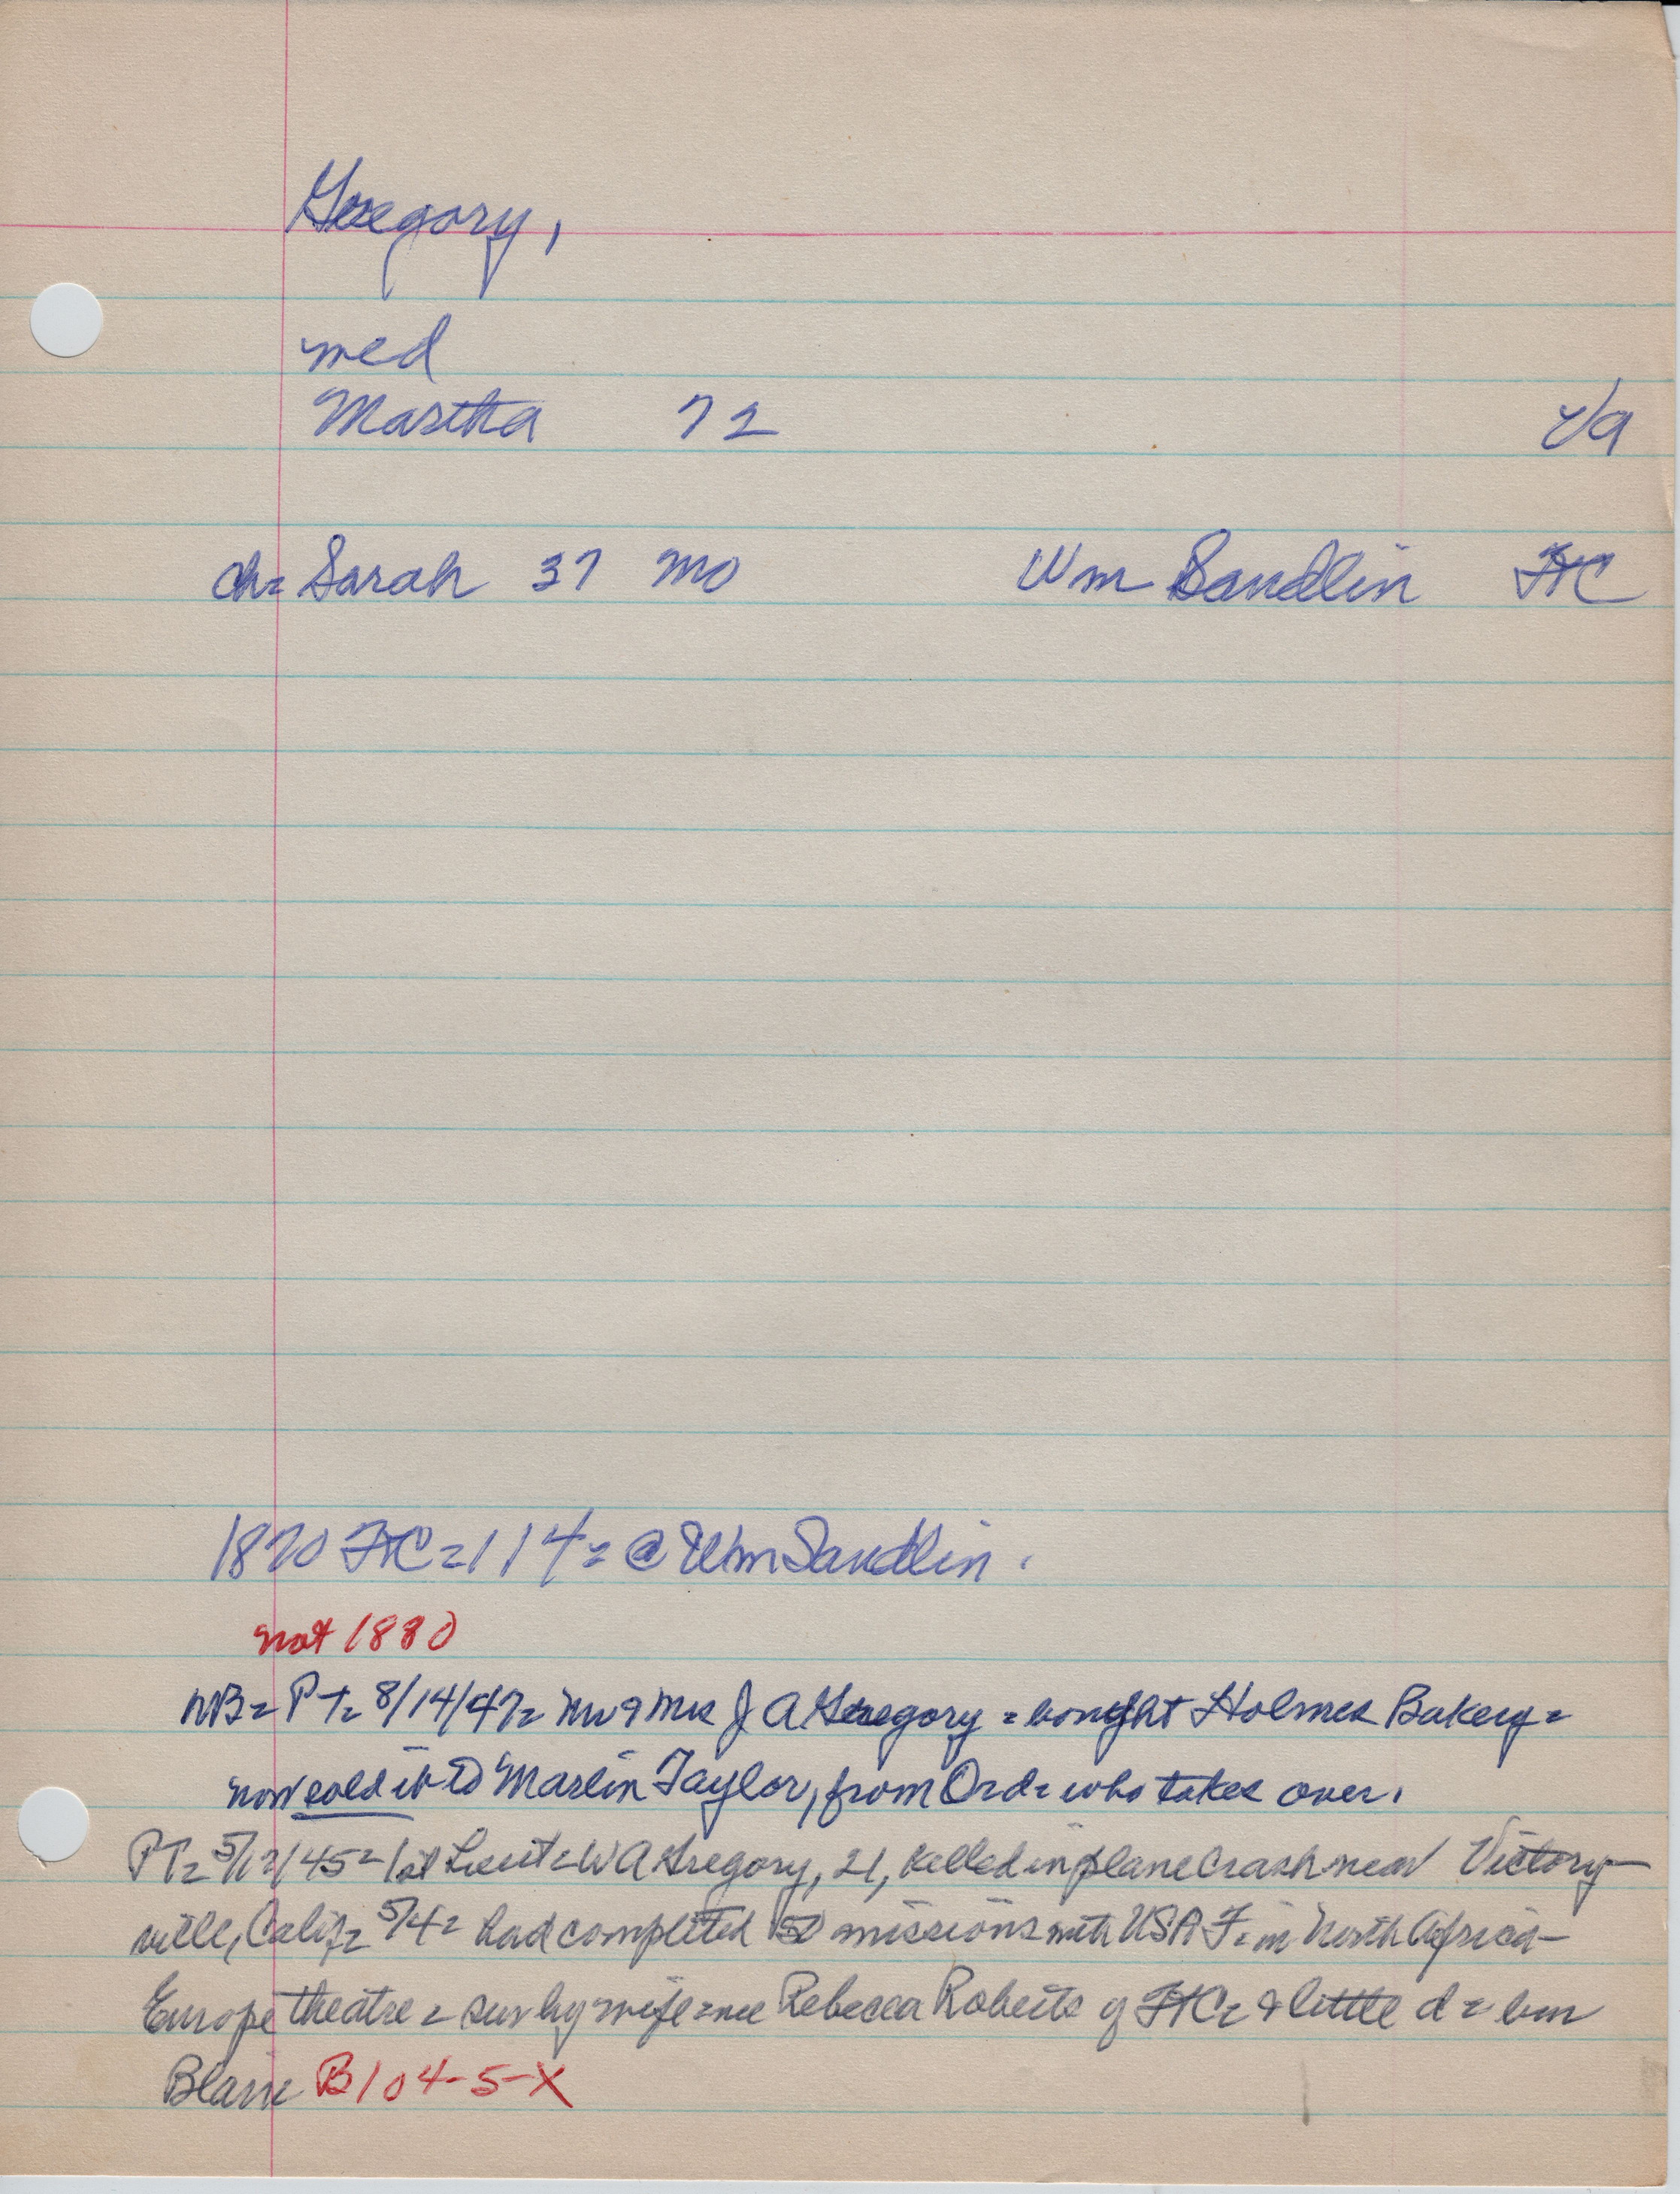 Gregory,
med
Martha 72 Va
ch= Sarah 37 Mo Wm Sandlin FC
1870 FC=114= @ Wm Sandlin.
not 1880
NB= PT= 8/14/47= Mr & Mrs J A Gregory = bought Holmes Bakery=
now sold it to Marlin Taylor, from Ord= who takes over.
PT= 5/12/45= 1st Lieut= W A Gregory, 21, killed in plane crash near Victory-
ville, Calif= 5/4= had completed 50 missions with USAF= in North Africa-
Europe theatre= sur by wife=nee Rebecca Roberts of FC= & little d= bur
Blair B104-5-X